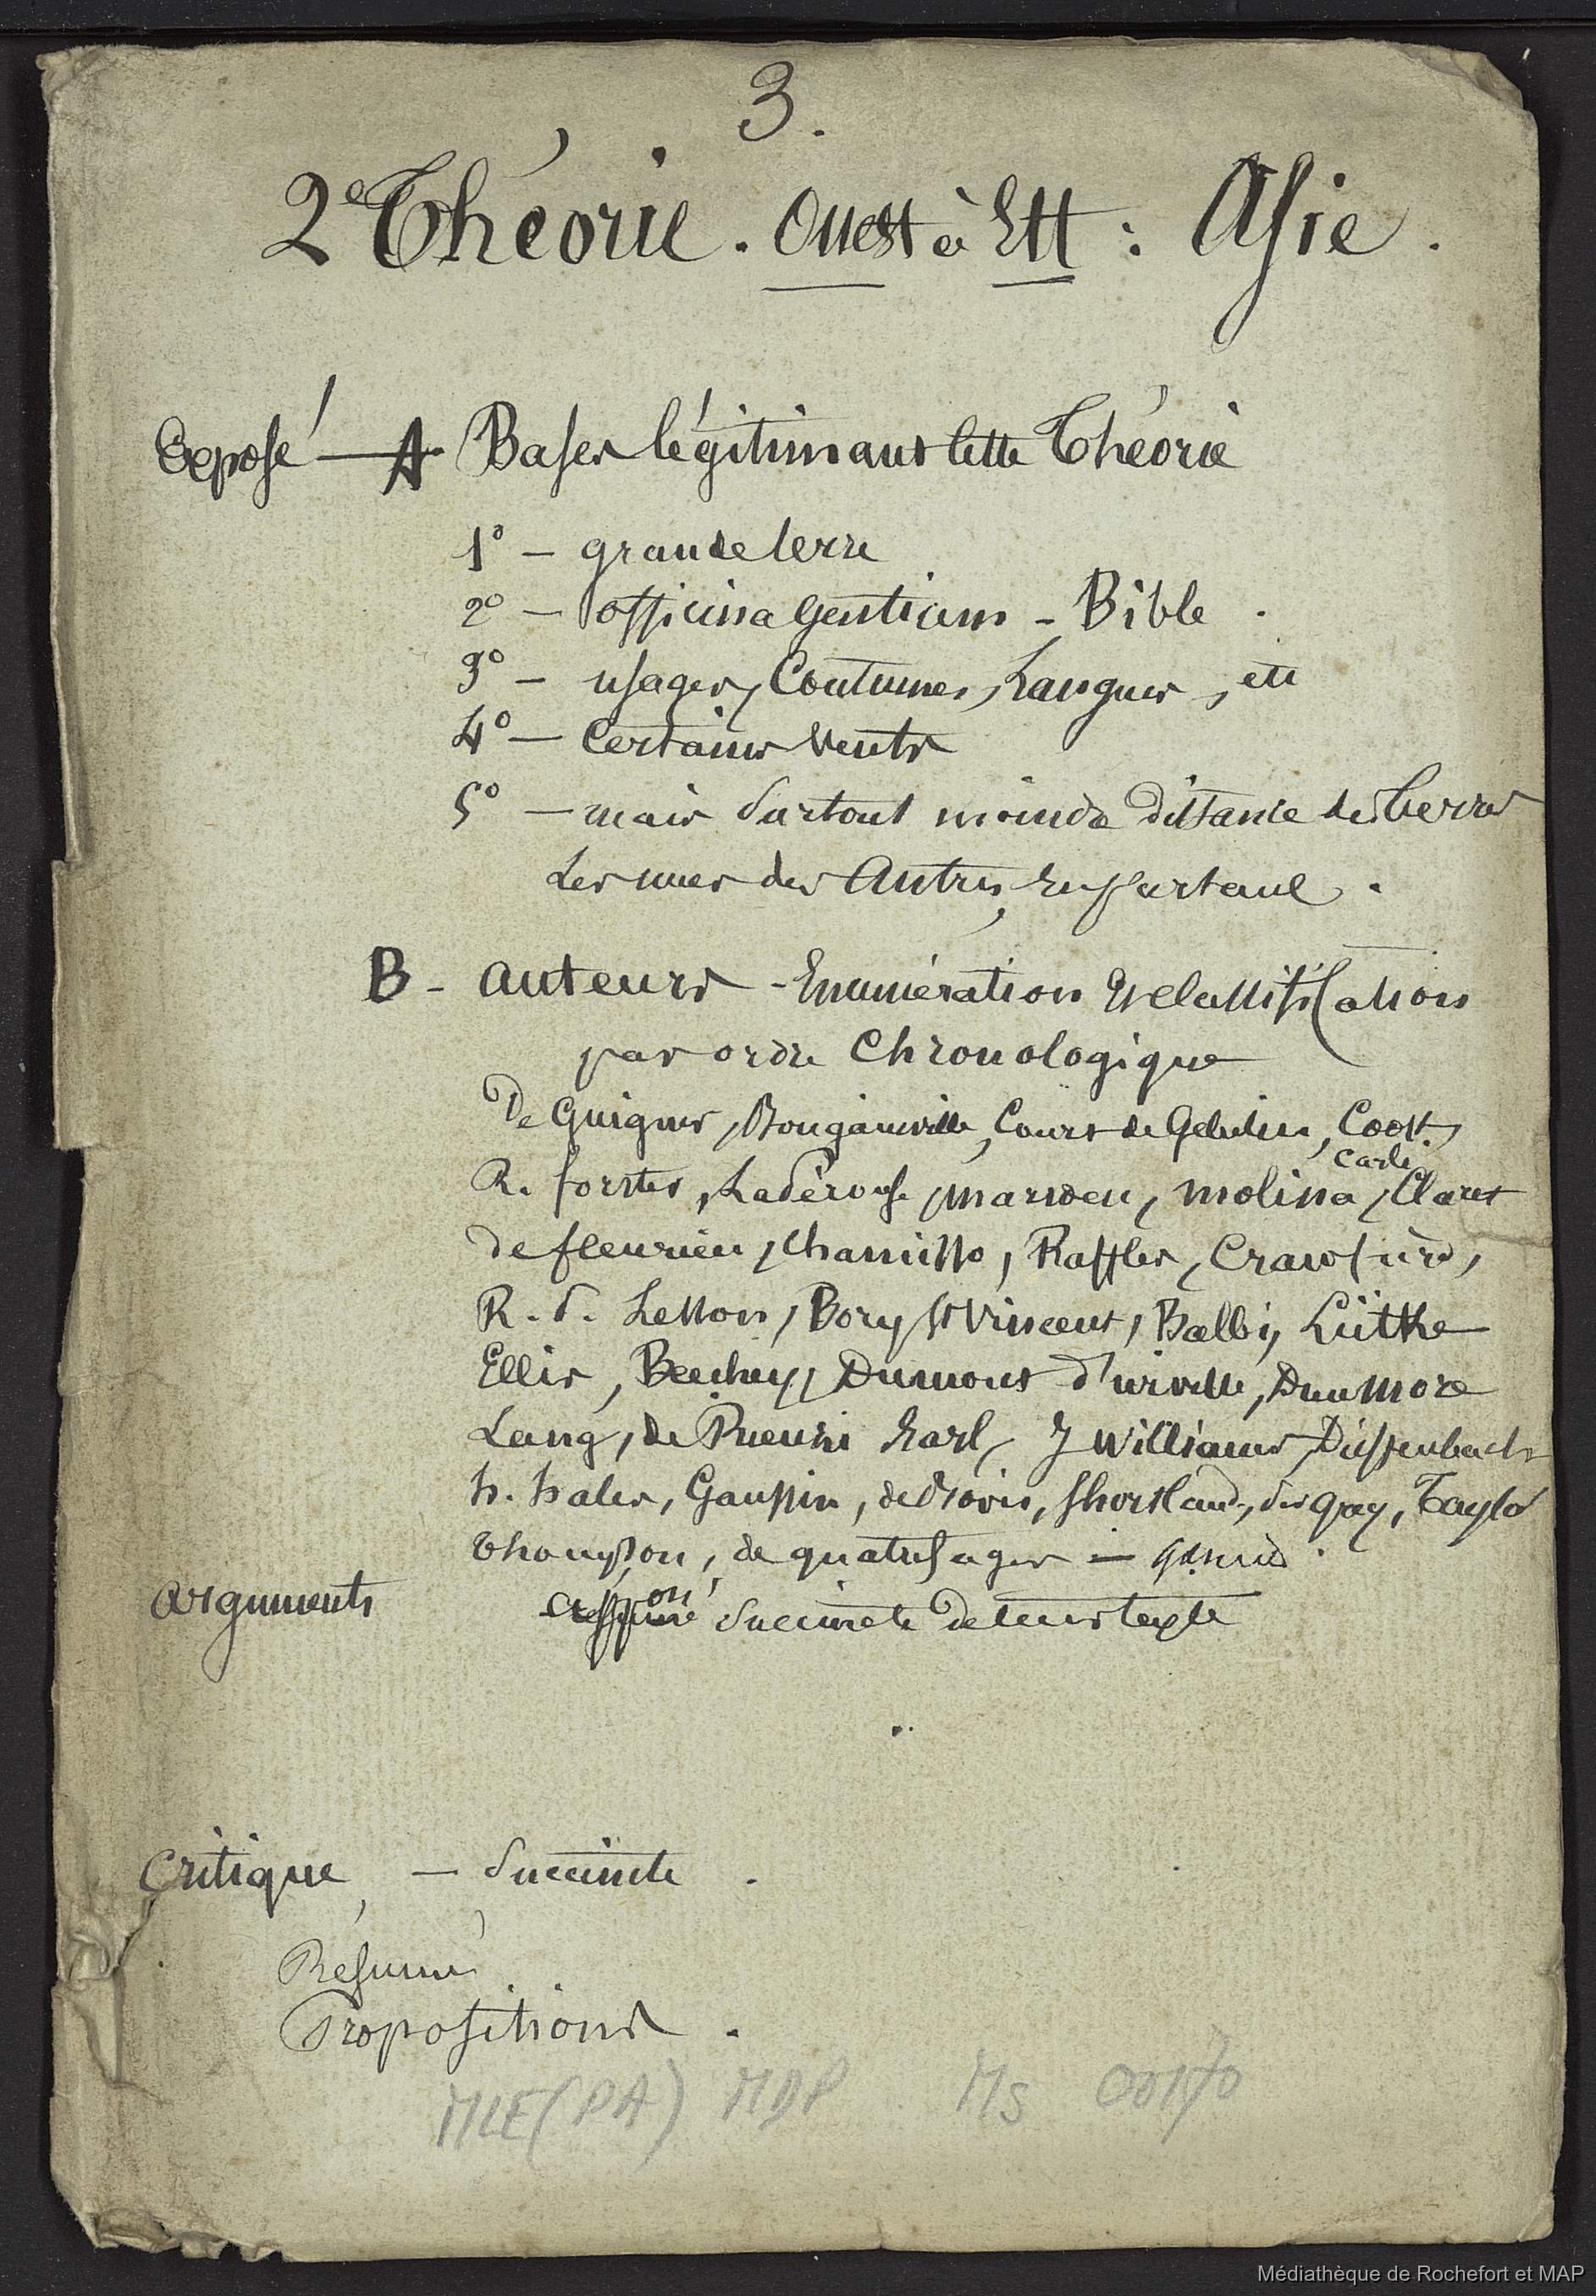 3.
2e Théorie. Ouest à Est : Asie.
Exposé — A Bases légitimant cette Théorie
1° — grande terre
2° — officina gentium - Bible.
3° — usages, Coutumes, Langues, etc
4° — Certains Vents
5° — mais surtout moindre distance des terres
les unes des Autres, en partant.
B - auteurs - Enumération et classification
par ordre Chronologique
De Guignes, Bougainville, Court de Gebelin, Cook,
Carli
R. forster, La Pérouse, marsden, molina, Claret
de fleurieu, Chamisso, Raffles, Crawfurd,
R. P. Lesson, Bory St Vincent, Balbi, Lütke
Ellis, Beechey, Dumont d'urville, Dunmore
Lang, de Rienzi Earl, J Williams, Dieffenbach
h. hales, Gaussin, de Bovis, Shortland, Sir Grey, Taylor
Thompson, de quatrefages —
arguments on succincte de leur texte
Critique, — Succincte.
Résumé.
Propositions.
MLE (PA) MDP Ms 00170
Médiathèque de Rochefort et MAP